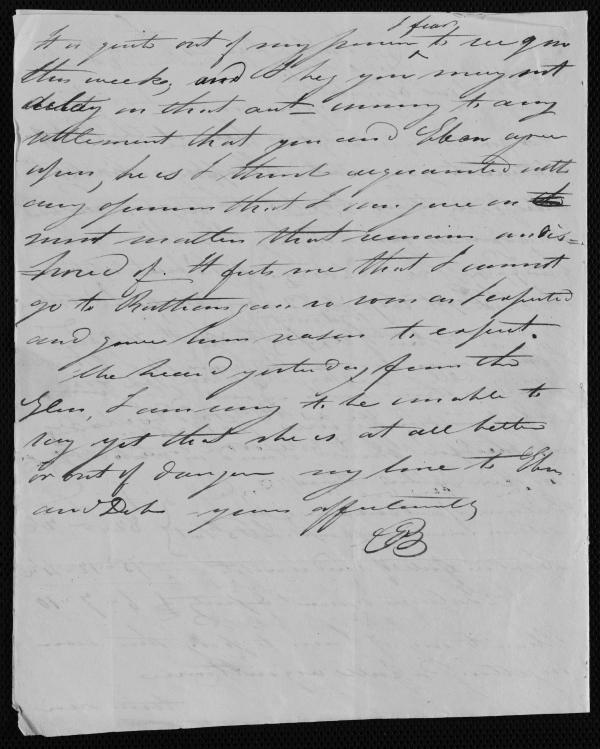 I fear
It is quite out of my power to see you
this week, and I beg you may not
delay on that act. coming to any
settlement that you and Eben agree
upon, he is I think acquainted with
any opinion that I can give on the
most matters that remain undis=
=posed of. It frets me that I cannot
go to so soon as I expected
and gave him reason to expect.
We heard yesterday from the
Glen, I am sorry to be unable to
say yet that she is at all better
or out of danger my love to Eben
and Deb yours affectionately
CB